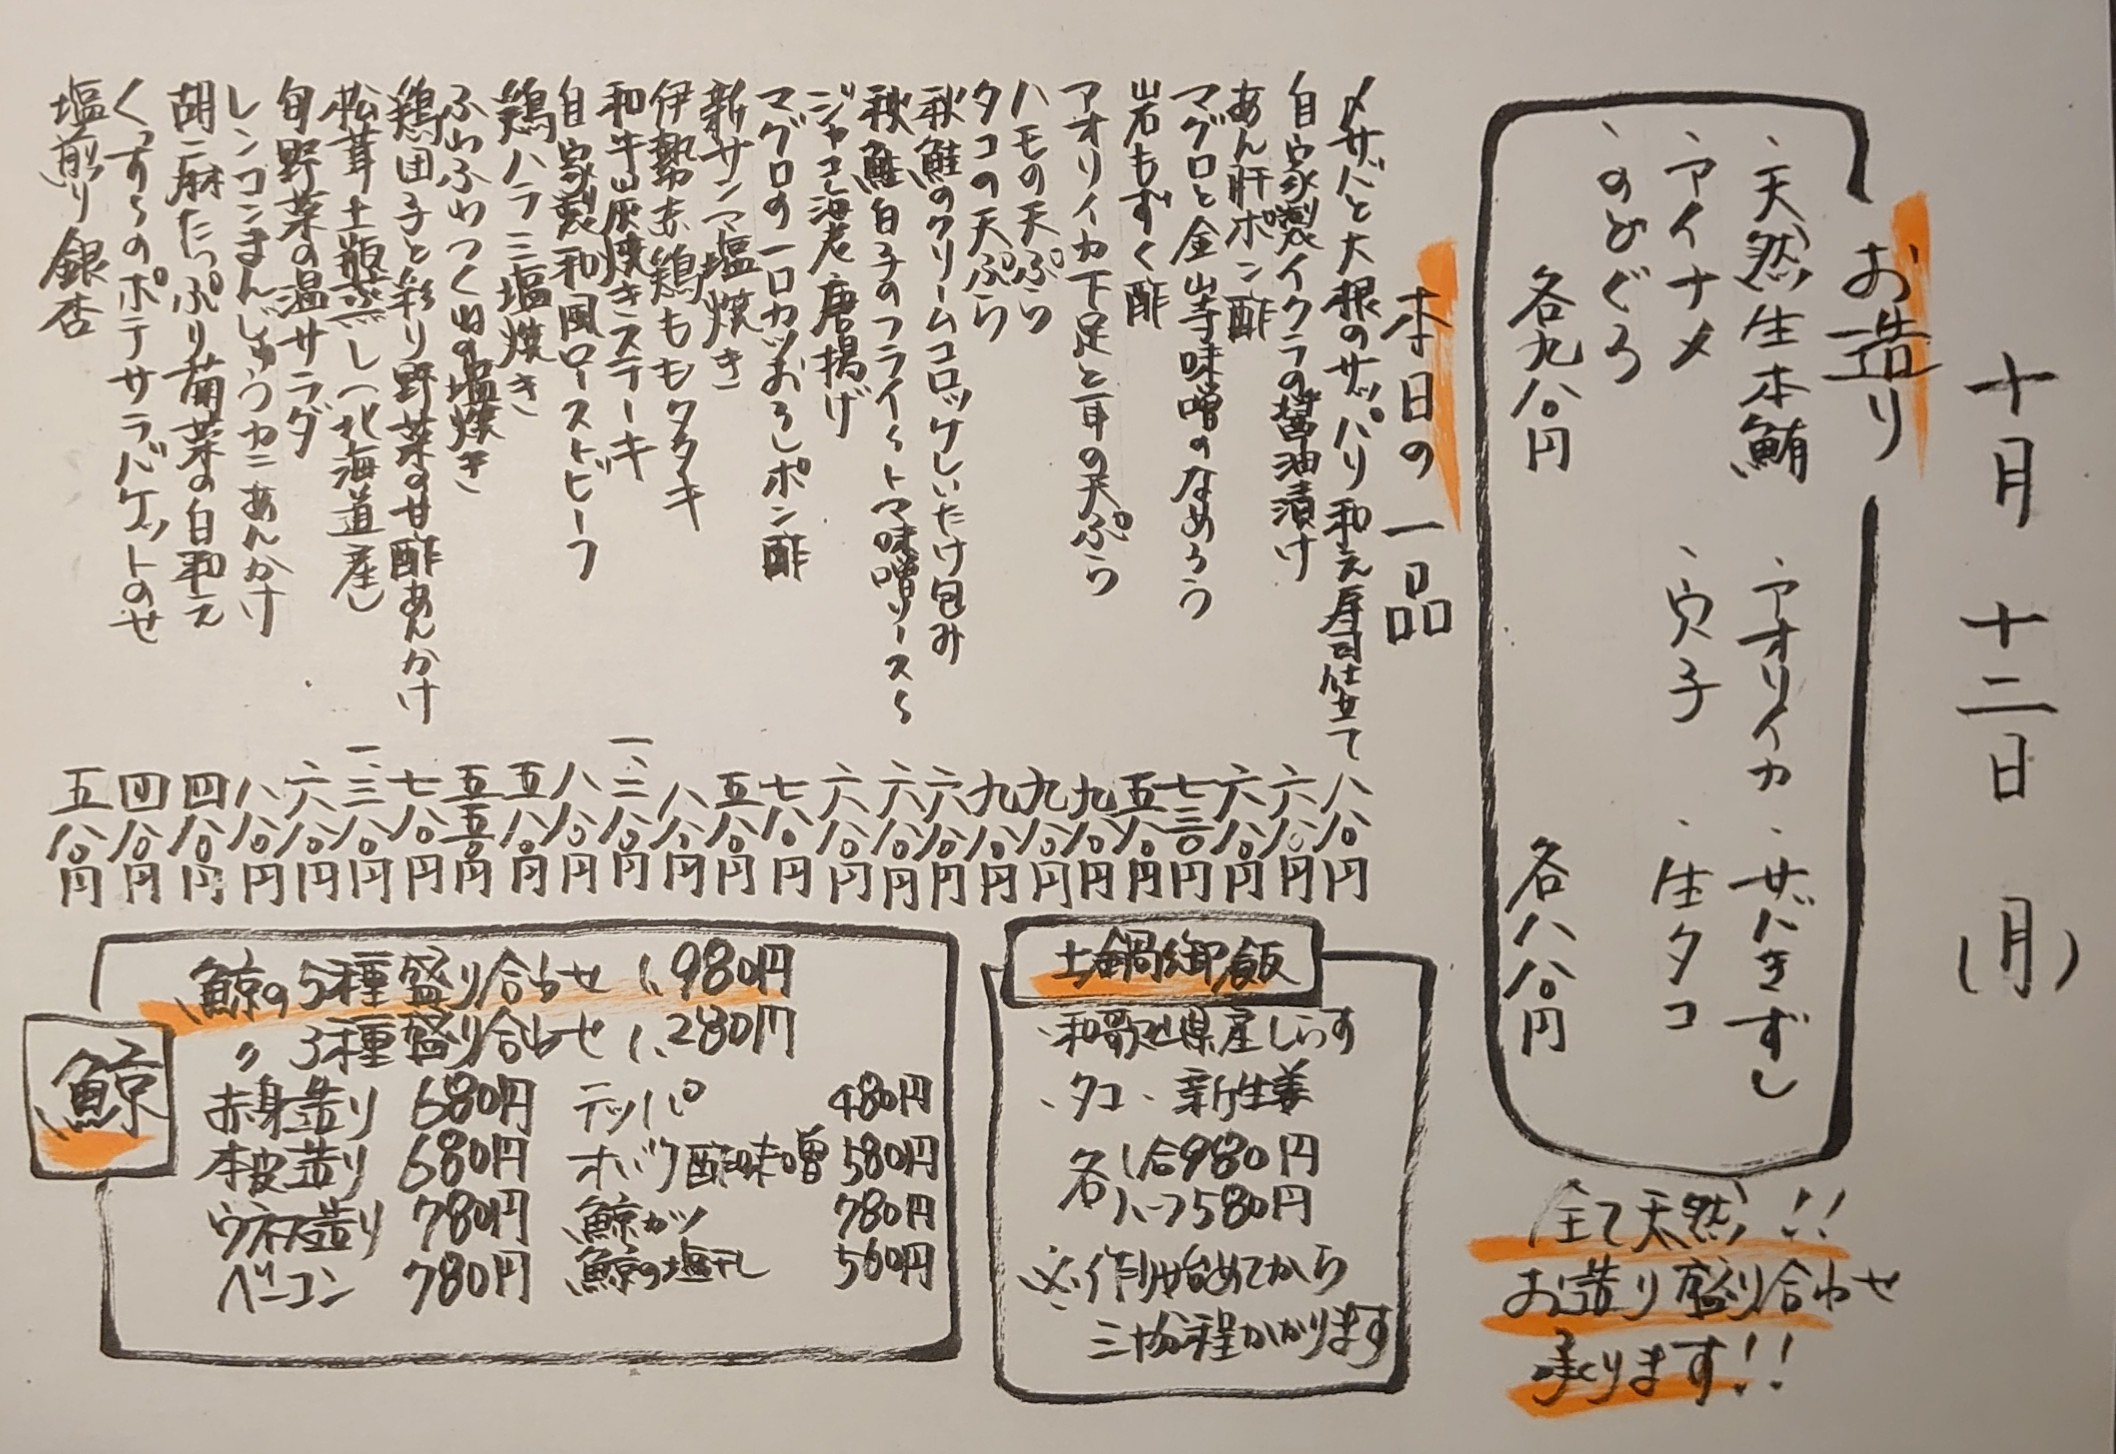 十月十二日(月)
お造り
・天然生本鮪 ・アオリイカ ・サバきずし
・アイナメ ・穴子 ・生タコ
・のどぐろ
各九八〇円 各八八〇円
全て天然!!
お造り盛り合わせ
承ります!!
本日の一品
〆サバと大根のサッパリ和え寿司仕立て 八八〇円
自家製イクラの醤油漬け 六八〇円
あん肝ポン酢 六八〇円
マグロと金山寺味噌のなめろう 七三〇円
岩もずく酢 五八〇円
アオリイカ下足と耳の天ぷら 九八〇円
ハモの天ぷら 九八〇円
タコの天ぷら 九八〇円
秋鮭のクリームコロッケしいたけ包み 六八〇円
秋鮭白子のフライ〜トマト味噌ソース〜 六八〇円
ジャコ海老唐揚げ 六八〇円
マグロの一口カツおろしポン酢 七八〇円
新サンマ塩焼き 五八〇円
伊勢赤鶏ももタタキ 八八〇円
和牛炭焼きステーキ 一、二八〇円
自家製和風ローストビーフ 八八〇円
鶏ハラミ塩焼き 五八〇円
ふわふわつくねの塩焼き 五五〇円
鶏団子と彩り野菜の甘酢あんかけ 七八〇円
松茸土瓶蒸し(北海道産) 一、三八〇円
旬野菜の温サラダ 六八〇円
レンコンまんじゅうカニあんかけ 八八〇円
胡麻たっぷり菊菜の白和え 四八〇円
くずしのポテサラバケットのせ 四八〇円
塩煎り銀杏 五八〇円
土鍋御飯
・和歌山県産しらす
・タコ ・新生姜
各1合980円
各ハーフ580円
※作り始めてから
三十分程かかります
鯨
鯨の5種盛り合わせ 1,980円
〃 3種盛り合わせ 1,280円
赤身造り 680円 テッパ 480円
本皮造り 680円 オバケ酢味噌 580円
ウネス造り 780円 鯨カツ 780円
ベーコン 780円 鯨の塩干し 560円